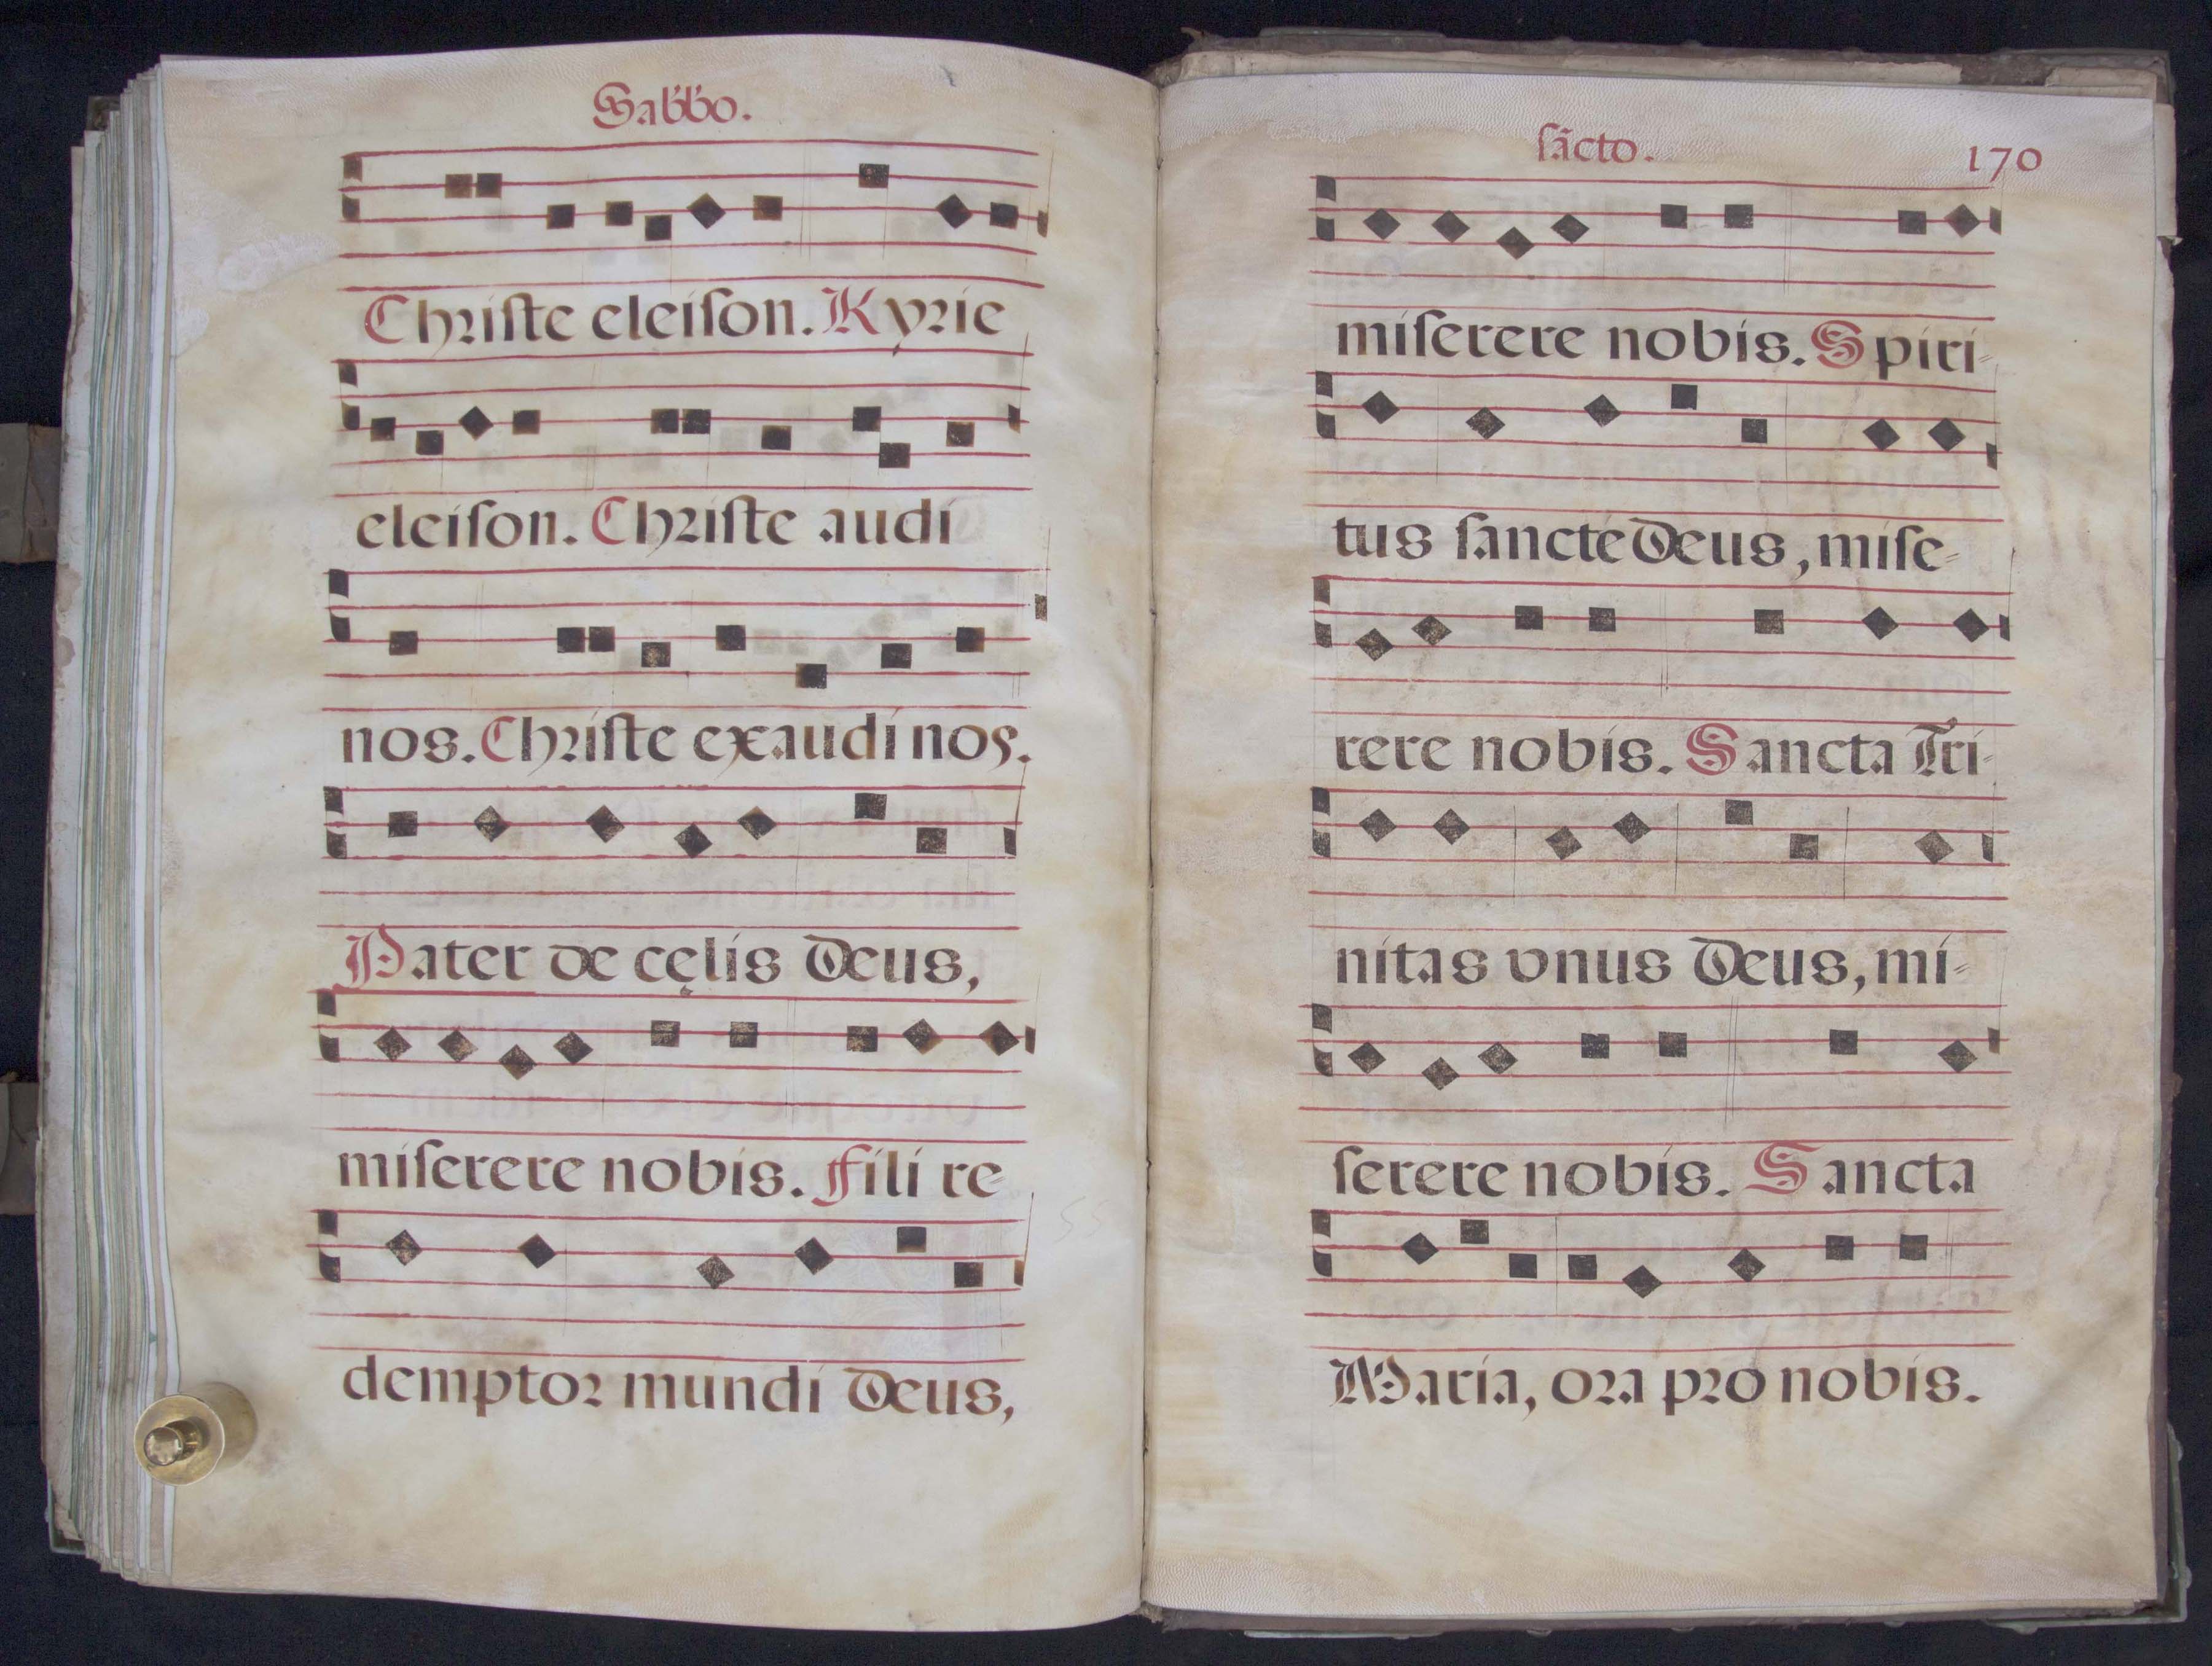 Sabb̃o.
Chriſte eleiſon. Kyrie
eleiſon. Chriſte audi
nos. Chriſte exaudi nos.
Pater de cęlis Deus,
miſerere nobis. Fili re-
demptor mundi Deus,
ſãcto.
170
miſerere nobis. Spiri-
tus ſancte Deus, miſe-
rere nobis. Sancta Tri-
nitas vnus Deus, mi-
ſerere nobis. Sancta
Maria, ora pro nobis.